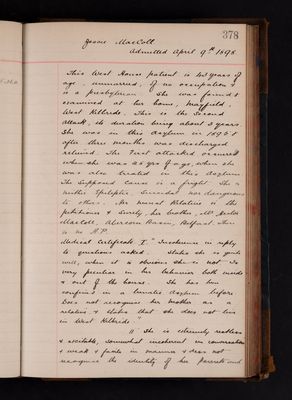 378
Jessie MacColl
Admitted April 9th 1898.
This West House patient is 43 years of
age, unmarried, of no occupation &
is a presbyterian. She was found &
examined at her home, Mayfield,
West Kilbride. This is the second
attack, its duration being about 3 years
She was in this Asylum in 1895 &
after three months was discharged
relieved. The first attack occurred
when she was 25 yrs of age, when she
was also treated in this Asylum
The supposed cause is a fright. She is
neither Epileptic, Suicidal nor dangerous
to others. Her nearest Relative is the
petitioner & Surety, her brother, Mr Hector
MacColl, Belfast. There
is no H.P.
Medical Certificates I " Incoherence in reply
to questions asked. States she is quite
well, when it is obvious she is not. Is
very peculiar in her behavior both inside
& out of the house. She has been
confined in a lunatic asylum before
Does not recognise her mother as a
relative & states that she does not live
in West Kilbride "
II " She is extremely restless
& excitable, somewhat incoherent in conversation
& weak & facile in manner & does not
recognise the identity of her parents and